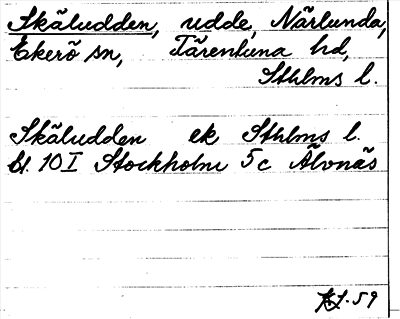 Skäludden, udde, Närlunda,
Ekerö sn, Färentuna hd,
Sthlms l.
Skäludden ek Sthlms l.
bl. 10 I Stockholm 5c Älvnäs
59